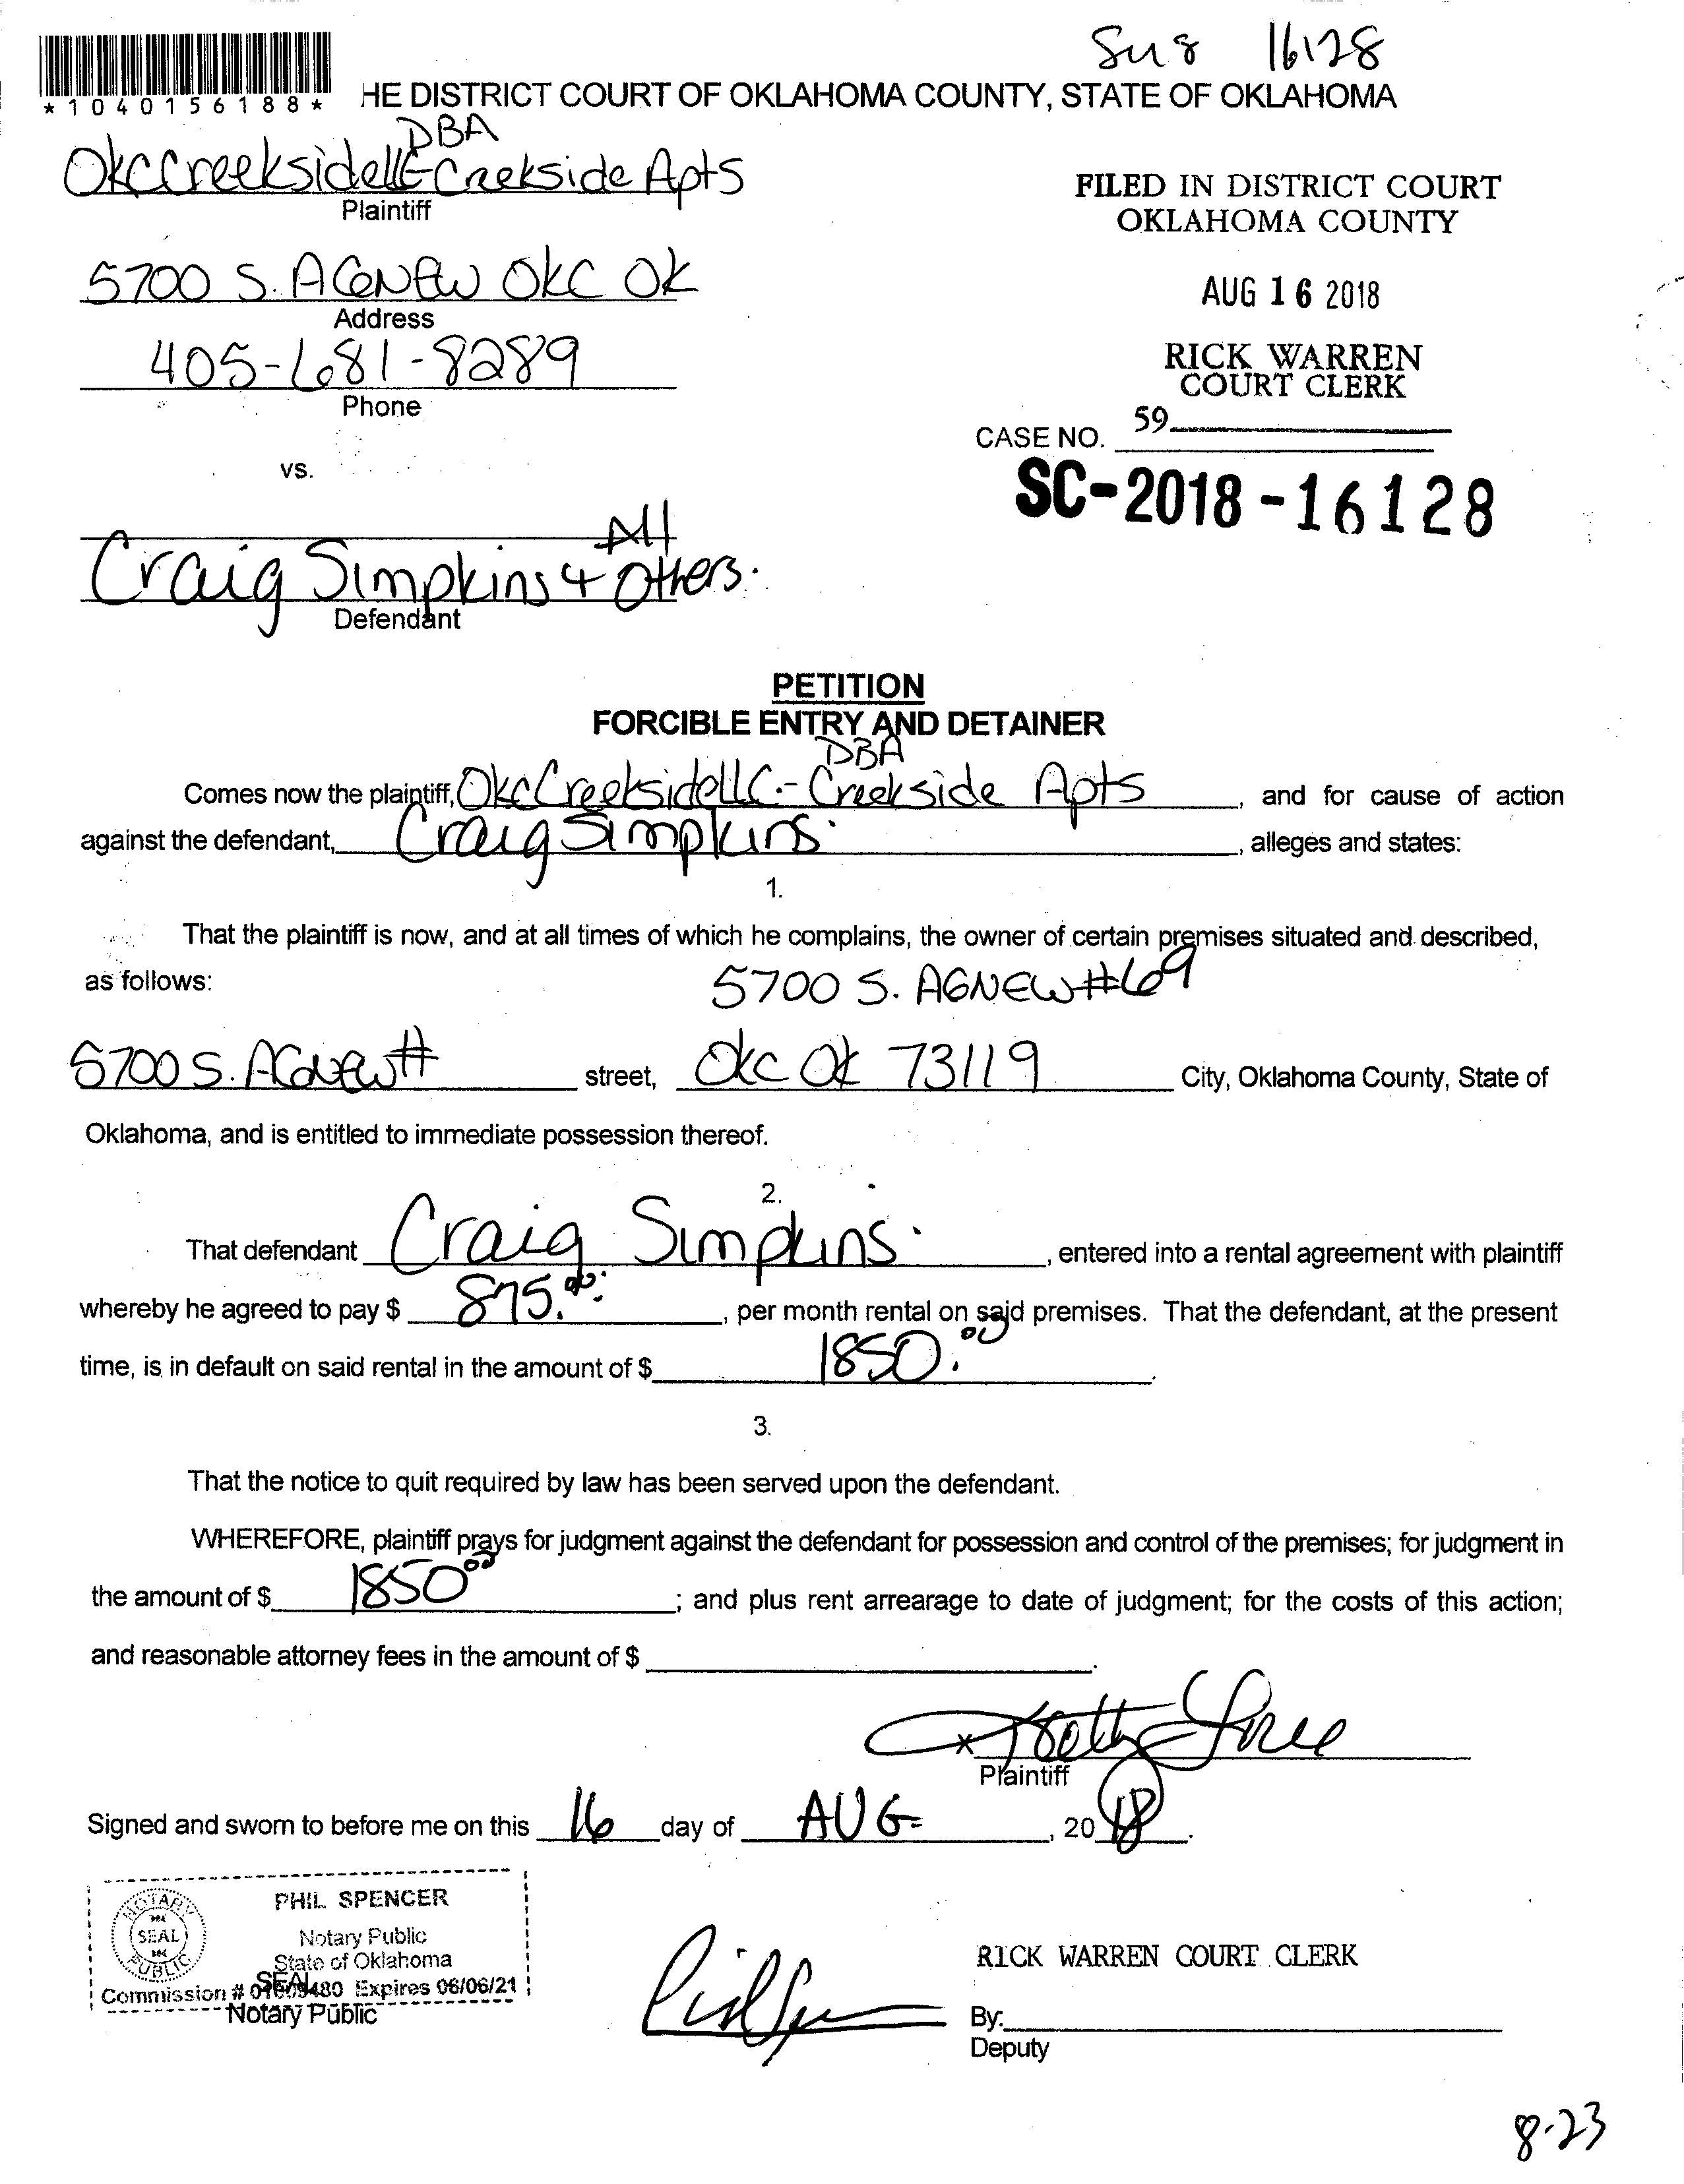 Sus 16128
*1040156188*
HE DISTRICT COURT OF OKLAHOMA COUNTY, STATE OF OKLAHOMA
DBA
OKC Creekside LLC - Creekside Apts
Plaintiff
FILED IN DISTRICT COURT
OKLAHOMA COUNTY
5700 S. AGNEW OKC OK
Address
AUG 16 2018
405-681-8289
Phone
RICK WARREN
COURT CLERK
59
CASE NO.
vs.
SC-2018-16128
All
Craig Simpkins & Others.
Defendant
PETITION
FORCIBLE ENTRY AND DETAINER
DBA
Comes now the plaintiff, Okc Creekside LLC.- Creekside Apts, and for cause of action
against the defendant, Craig Simpkins, alleges and states:
1.
That the plaintiff is now, and at all times of which he complains, the owner of certain premises situated and described,
as follows:
5700 S. AGNEW #69
5700 S. AGNEW # street, OKC OK 73119 City, Oklahoma County, State of
Oklahoma, and is entitled to immediate possession thereof.
2.
That defendant Craig Simpkins, entered into a rental agreement with plaintiff
whereby he agreed to pay $ 875.00, per month rental on said premises. That the defendant, at the present
time, is in default on said rental in the amount of $ 1850.00.
3.
That the notice to quit required by law has been served upon the defendant.
WHEREFORE, plaintiff prays for judgment against the defendant for possession and control of the premises; for judgment in
the amount of $ 1850.00; and plus rent arrearage to date of judgment; for the costs of this action;
and reasonable attorney fees in the amount of $ .
x
Plaintiff
Signed and sworn to before me on this 16 day of AUG, 2018.
NOTARY PUBLIC SEAL
PHIL SPENCER
Notary Public
State of Oklahoma
SEAL
Commission # Expires 06/06/21
Notary Public
RICK WARREN COURT CLERK
By:
Deputy
8-23